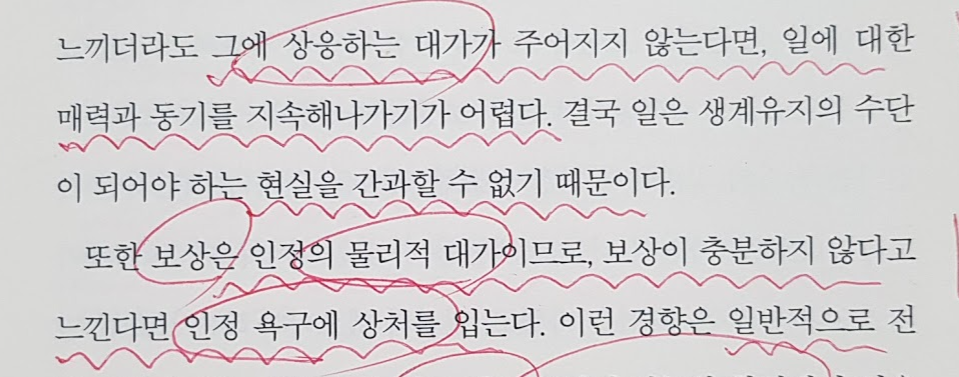 느끼더라도 그에 상응하는 대가가 주어지지 않는다면, 일에 대한
매력과 동기를 지속해나가기가 어렵다. 결국 일은 생계유지의 수단
이 되어야 하는 현실을 간과할 수 없기 때문이다.
또한 보상은 인정의 물리적 대가이므로, 보상이 충분하지 않다고
느낀다면 인정 욕구에 상처를 입는다. 이런 경향은 일반적으로 전